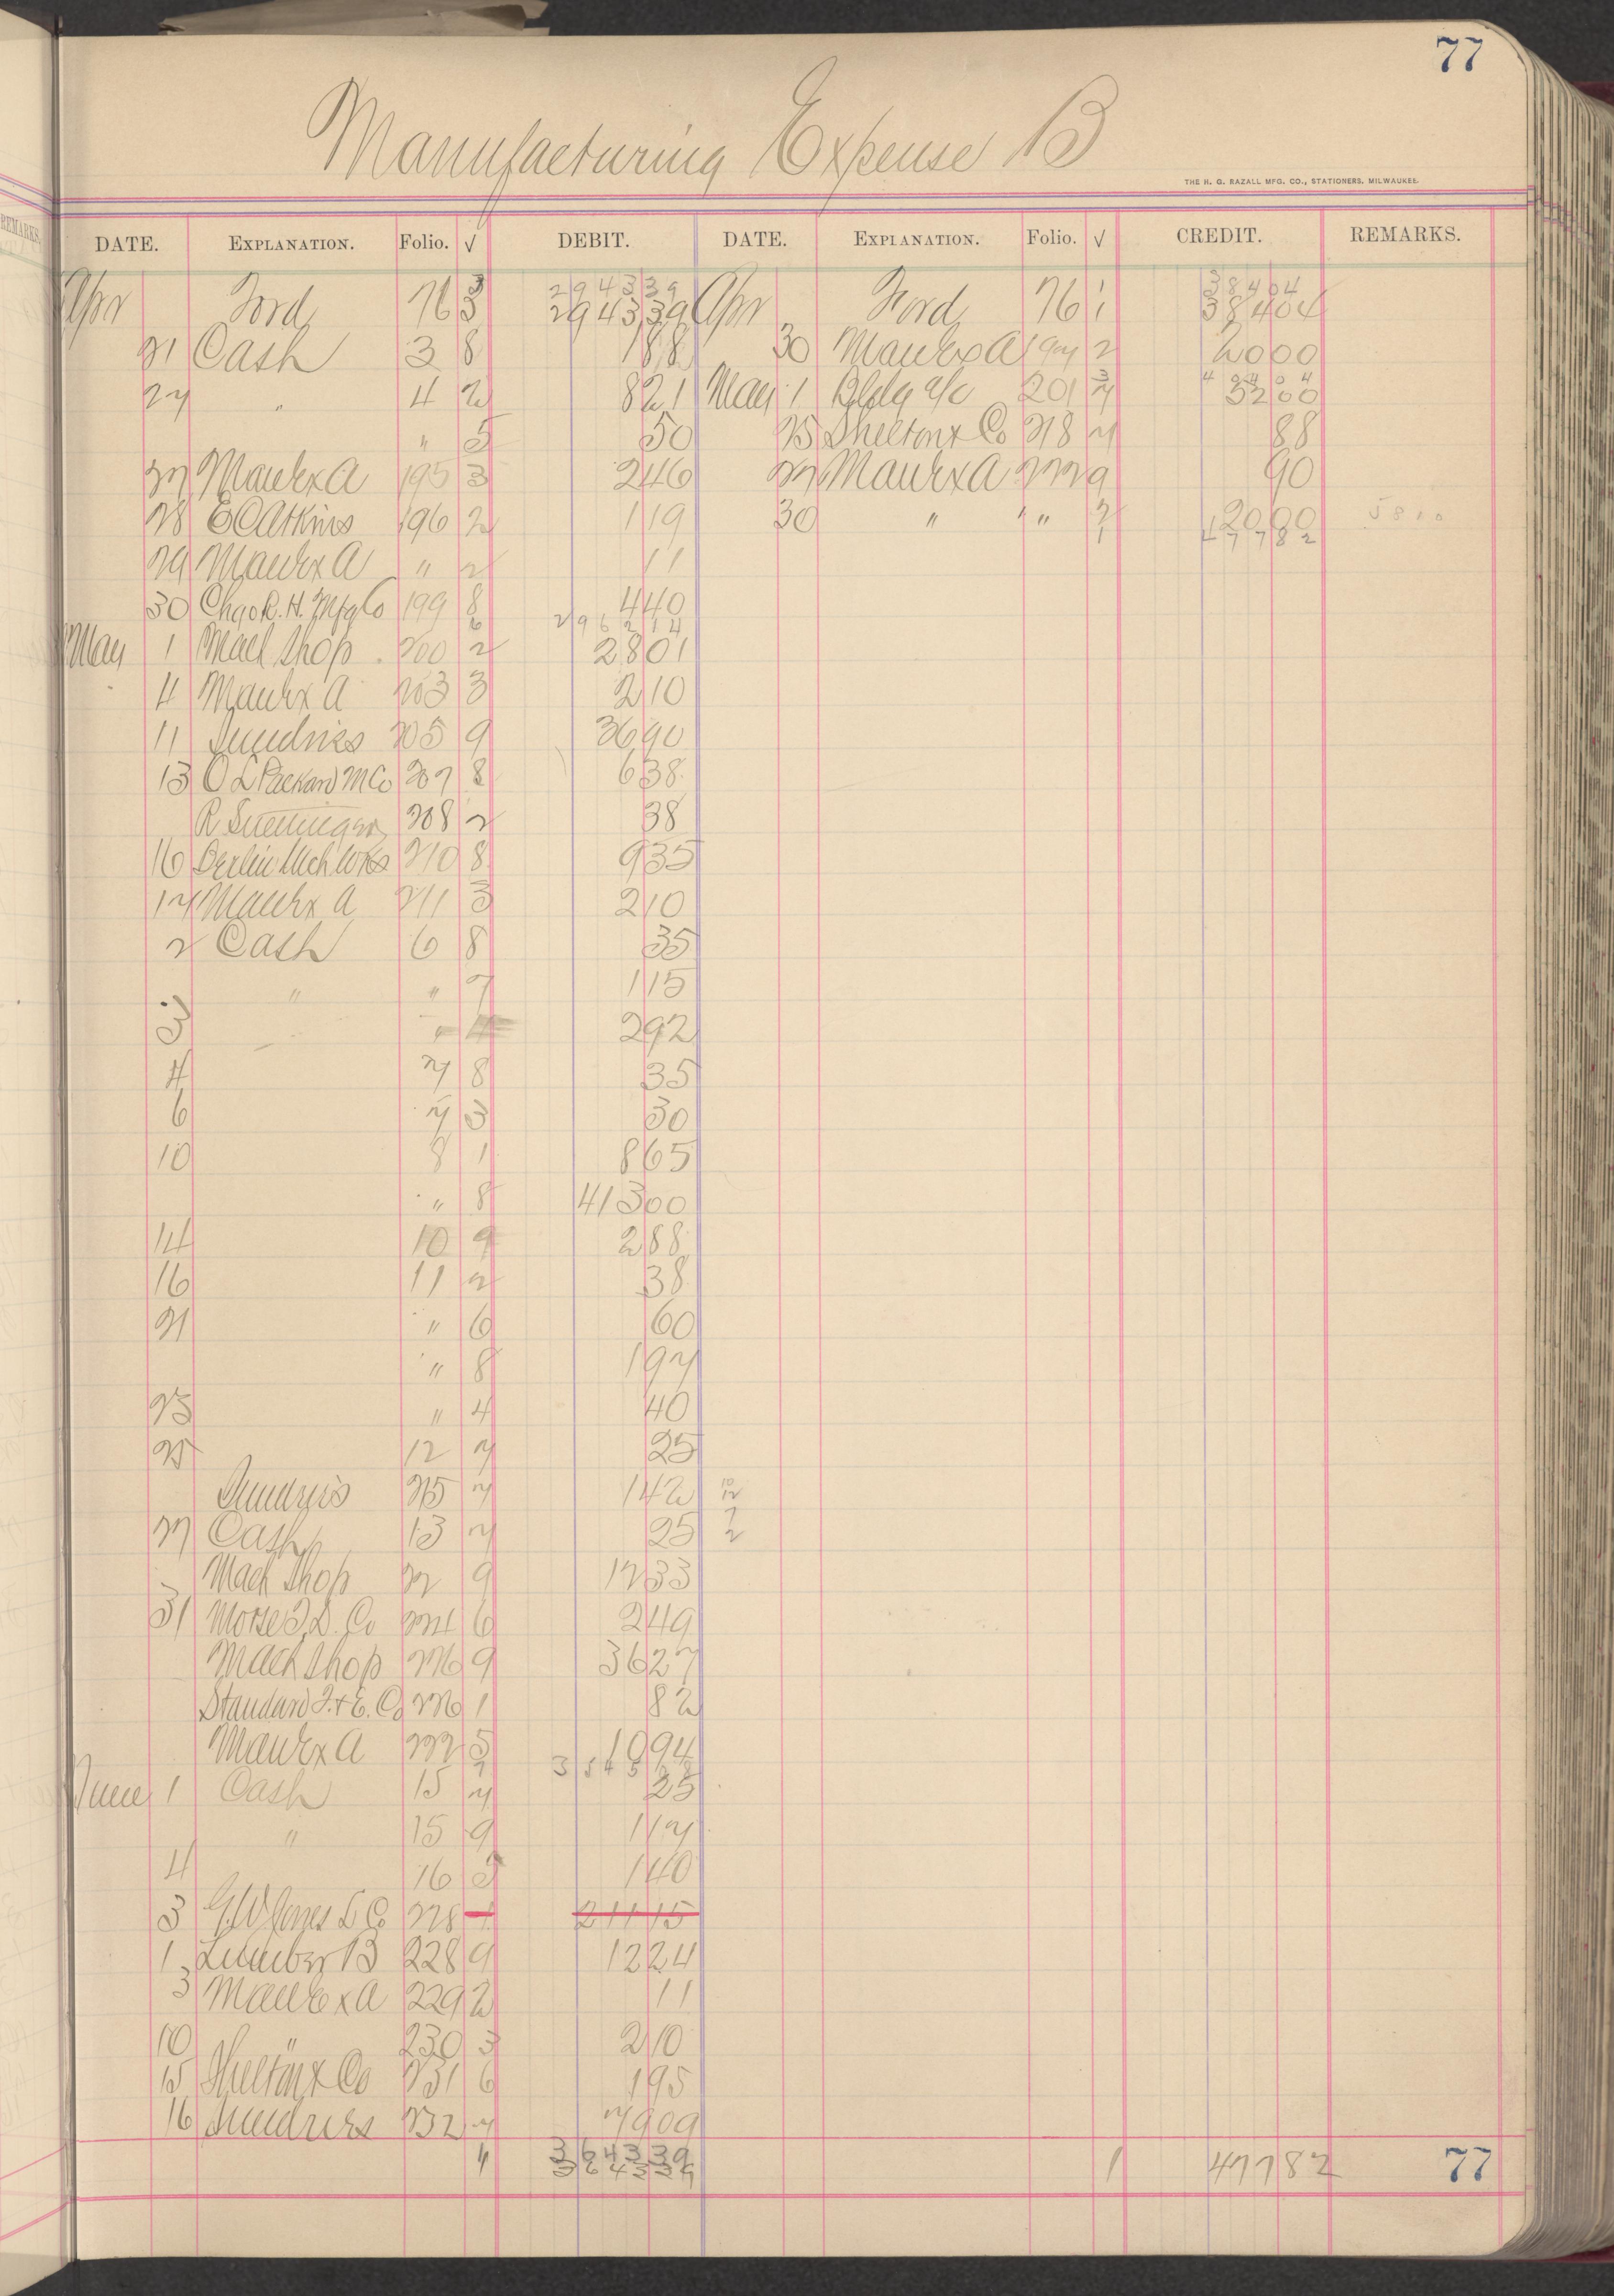 77
Manufacturing Expense B
THE H. G. RAZALL MFG. CO., STATIONERS, MILWAUKEE.
REMARKS.
DATE. EXPLANATION. Folio. √ DEBIT. DATE. EXPLANATION. Folio. √ CREDIT. REMARKS.
294339 38404
Apr Ford 76 3 294339 Apr Ford 76 1 38404
21 Cash 3 8 188 30 Manf Ex A 197 2 2000
27 " 4 2 821 May 1 Bldg a/c 201 7 3200
" 5 50 25 Shelton & Co 218 7 88
27 Manf Ex A 195 3 246 27 Manf Ex A 222 9 90
28 E C Atkins 196 2 119 30 " " 2000 5810
47782
29 Manf Ex A " 2 11
30 Chas R. H. Mfg Co 199 8 440
296214
May 1 Mach Shop 200 2 2801
4 Manf Ex A 203 3 210
11 Sundries 205 9 3690
13 O L Packard M Co 207 8 638
R 208 2 38
16 Berlin Mch Wks 210 8 935
17 Manf Ex A 211 3 210
2 Cash 6 8 35
" " 7 115
3 " 4 292
4 7 8 35
6 7 3 30
10 8 1 865
" 8 41300
14 10 9 288
16 11 2 38
21 " 6 60
" 8 197
23 " 4 40
25 12 7 25
Sundries 215 7 142
27 Cash 13 7 25
Mach Shop 22 9 1233
31 Morse T. D. Co 224 6 249
Mach Shop 226 9 3627
Standard T. & E. Co 226 1 82
Manf Ex A 222 5 1094
June 1 Cash 15 7 25
" 15 9 117
4 16 5 140
3 G. W Jones L Co 228 1 21115
1 Lumber B 228 9 1224
3 Manf Ex A 229 2 11
10 " 230 3 210
15 Shelton & Co 231 6 195
16 Sundries 232 7 7909
364339
4 364339 1 47782 77